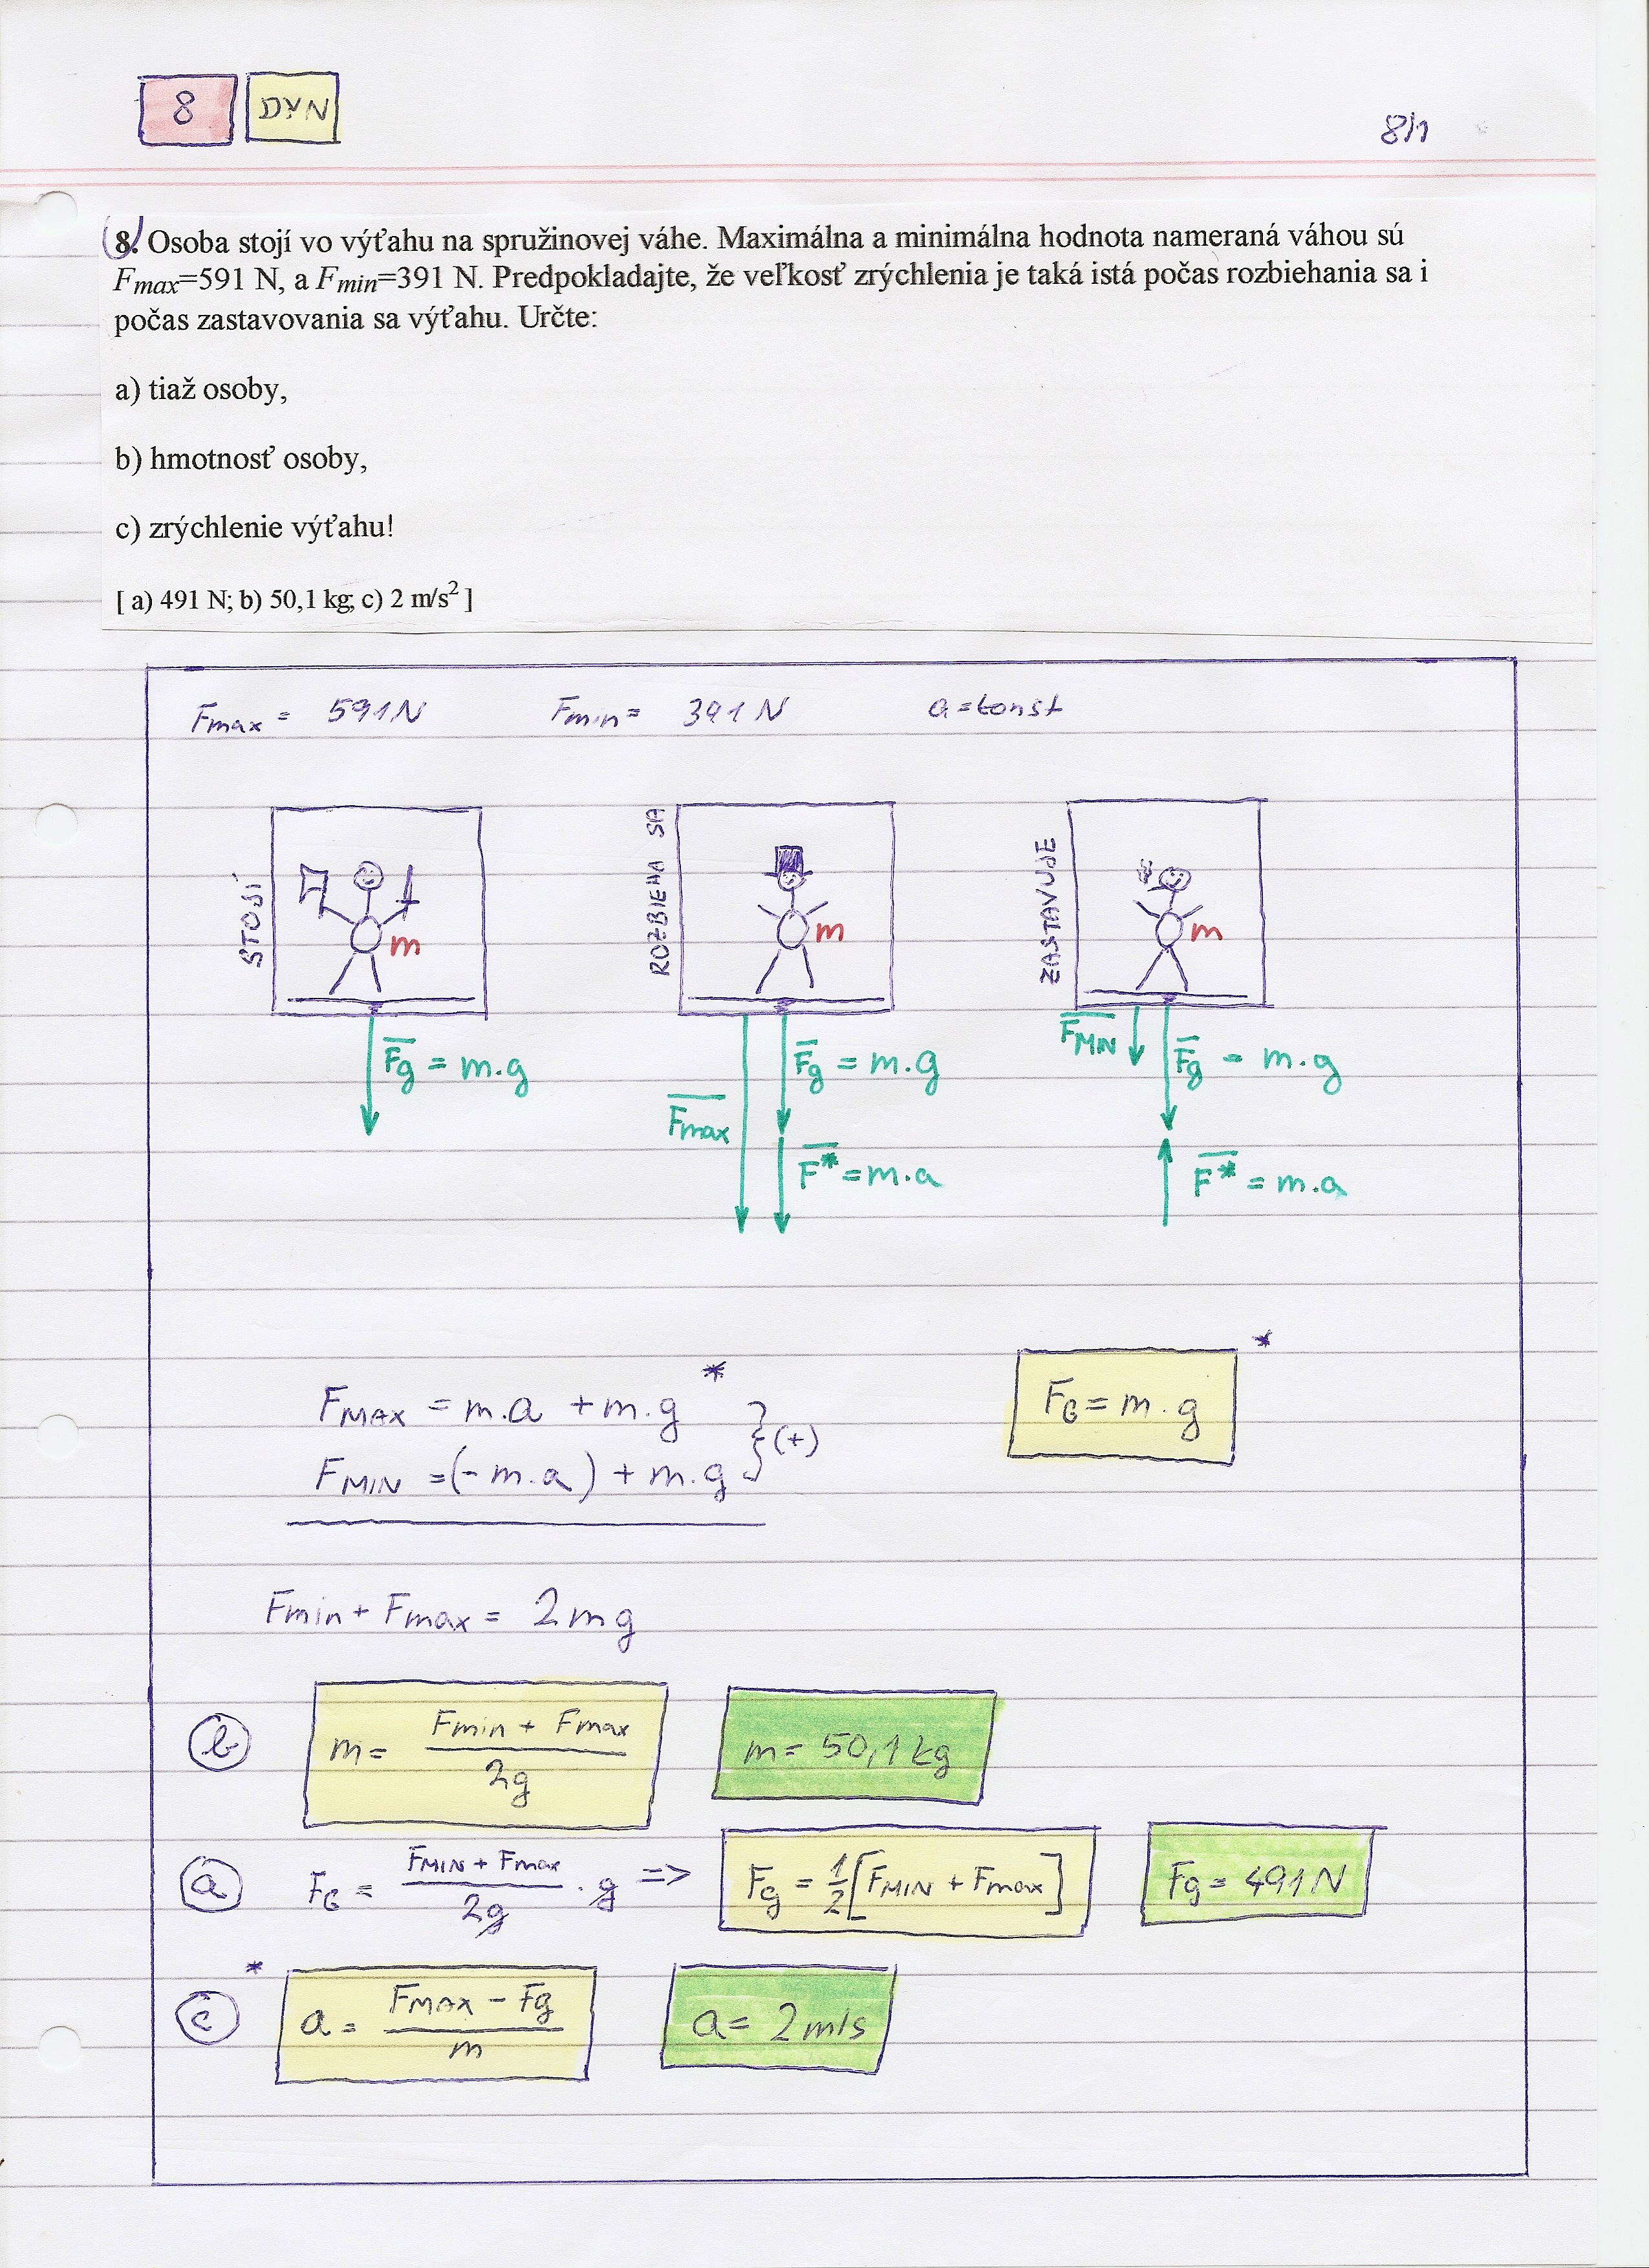 8 DYN
8/1
8. Osoba stojí vo výťahu na spružinovej váhe. Maximálna a minimálna hodnota nameraná váhou sú
Fmax=591 N, a Fmin=391 N. Predpokladajte, že veľkosť zrýchlenia je taká istá počas rozbiehania sa i
počas zastavovania sa výťahu. Určte:
a) tiaž osoby,
b) hmotnosť osoby,
c) zrýchlenie výťahu!
[ a) 491 N; b) 50,1 kg; c) 2 m/s² ]
Fmax = 591N Fmin = 391 N a = konst
STOJÍ m
ROZBIEHA SA m
ZASTAVUJE m
Fg = m.g
Fmax Fg = m.g
F* = m.a
FMIN Fg = m.g
F* = m.a
FMAX = m.a + m.g *
FMIN = (- m.a) + m.g } (+)
FG = m.g *
Fmin + Fmax = 2mg
b m = Fmin + Fmax / 2g m = 50,1 kg
a FG = FMIN + Fmax / 2g . g => Fg = 1/2 [FMIN + Fmax] Fg = 491 N
c * a = FMAX - Fg / m a = 2 m/s